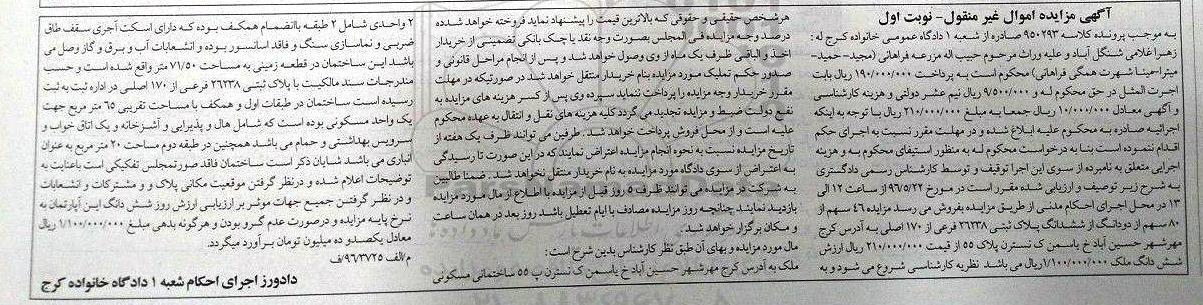 آگهی مزایده اموال غیر منقول- نوبت اول
به موجب پرونده کلاسه ۹۵۰۲۹۳ صادره از شعبه ۱ دادگاه عمومی خانواده کرج له :
زهرا غلامی شنگل آباد و علیه وراث مرحوم حبیب اله مزرعه فراهانی (مجید-حمید-
میترا-مینا شهرت همگی فراهانی) محکوم است به پرداخت ۱۹۰/۰۰۰/۰۰۰ ریال بابت
اجرت المثل در حق محکوم له و ۹/۵۰۰/۰۰۰ ریال نیم عشر دولتی و هزینه کارشناسی
و آگهی معادل ۱۰/۰۰۰/۰۰۰ ریال جمعا به مبلغ ۲۱۰/۰۰۰/۰۰۰ ریال با توجه به اینکه
اجرائیه صادره به محکوم علیه ابلاغ شده و در مهلت مقرر نسبت به اجرای حکم
اقدام ننموده است بنا به درخواست محکوم له به منظور استیفای محکوم به و هزینه
اجرایی متعلق به نامبرده از سوی این اجرا توقیف و توسط کارشناس رسمی دادگستری
به شرح زیر توصیف و ارزیابی شده مقرر است در مورخ ۹۶/۵/۲۲ از ساعت ۱۲ الی
۱۳ در محل اجرای احکام مدنی از طریق مزایده بفروش می رسد مزایده ۴۶ سهم از
۸۰ سهم از دودانگ از ششدانگ پلاک ثبتی ۲۶۲۳۸ فرعی از ۱۷۰ اصلی به آدرس کرج
مهرشهر حسین آباد خ یاسمن ک نسترن پلاک ۵۵ از قیمت ۲۱۰/۰۰۰/۰۰۰ ریال ارزش
شش دانگ ملک ۱/۱۰۰/۰۰۰/۰۰۰ ریال می باشد نظریه کارشناسی شروع می شود و به
هرشخص حقیقی و حقوقی که بالاترین قیمت را پیشنهاد نماید فروخته خواهد شد.ده
درصد وجه مزایده فی المجلس بصورت وجه نقد یا چک بانکی تضمینی از خریدار
اخذ و الباقی ظرف یک ماه از وی وصول خواهد شد و پس از انجام مراحل قانونی و
صدور حکم تملیک مورد مزایده بنام خریدار منتقل خواهد شد در صورتیکه در مهلت
مقرر خریدار وجه مزایده را پرداخت ننماید سپرده وی پس از کسر هزینه های مزایده به
نفع دولت ضبط و مزایده تجدید می گردد کلیه هزینه های نقل و انتقال به عهده محکوم
علیه است و از محل فروش پرداخت خواهد شد. طرفین می توانند ظرف یک هفته از
تاریخ مزایده نسبت به نحوه انجام مزایده اعتراض نمایند که در این صورت تا رسیدگی
به اعتراض از سوی دادگاه مورد مزایده به نام خریدار منتقل نخواهد شد. ضمنا طالبین
به شرکت در مزایده می توانند ظرف ۵ روز قبل از مزایده با اطلاع از مال مورد مزایده
بازدید نمایند چنانچه روز مزایده مصادف با ایام تعطیل باشد روز بعد در همان ساعت
و مکان برگزار خواهد شد.
مال مورد مزایده و بهای آن طبق نظر کارشناس بدین شرح است:
ملک به آدرس کرج مهرشهر حسین آباد خ یاسمن ک نسترن پ ۵۵ ساختمانی مسکونی
۲ واحدی شامل ۲ طبقه باانضمام همکف بوده که دارای اسکلت آجری سقف طاق
ضربی و نماسازی سنگ و فاقد اسانسور بوده و انشعابات آب و برق و گاز وصل می
باشد این ساختمان در قطعه زمینی به مساحت ۷۱/۵۰ متر واقع شده است و حسب
مندرجات سند مالکیت با پلاک ثبتی ۲۶۲۳۸ فرعی از ۱۷۰ اصلی در اداره ثبت به ثبت
رسیده است ساختمان در طبقات اول و همکف با مساحت تقریبی ۶۵ متر مربع جهت
یک واحد مسکونی بوده است که شامل هال و پذیرایی و آشپزخانه و یک اتاق خواب و
سرویس بهداشتی و حمام می باشد همچنین در طبقه دوم مساحت ۲۰ متر مربع به عنوان
انباری می باشد شایان ذکر است ساختمان فاقد صورتمجلس تفکیکی است باعنایت به
توضیحات اعلام شده و درنظر گرفتن موقعیت مکانی پلاک و و مشترکات و انشعابات
و در نظر گرفتن جمیع جهات موثر بر ارزیابی ارزش روز شش دانگ این آپارتمان به
نرخ پایه مزایده و درصورت عدم گرو بودن و هرگونه بدهی مبلغ ۱/۱۰۰/۰۰۰/۰۰۰ ریال
معادل یکصدو ده میلیون تومان برآورد میگردد.
م/الف ۹۶/۳۷۲۵/ف
دادورز اجرای احکام شعبه ۱ دادگاه خانواده کرج